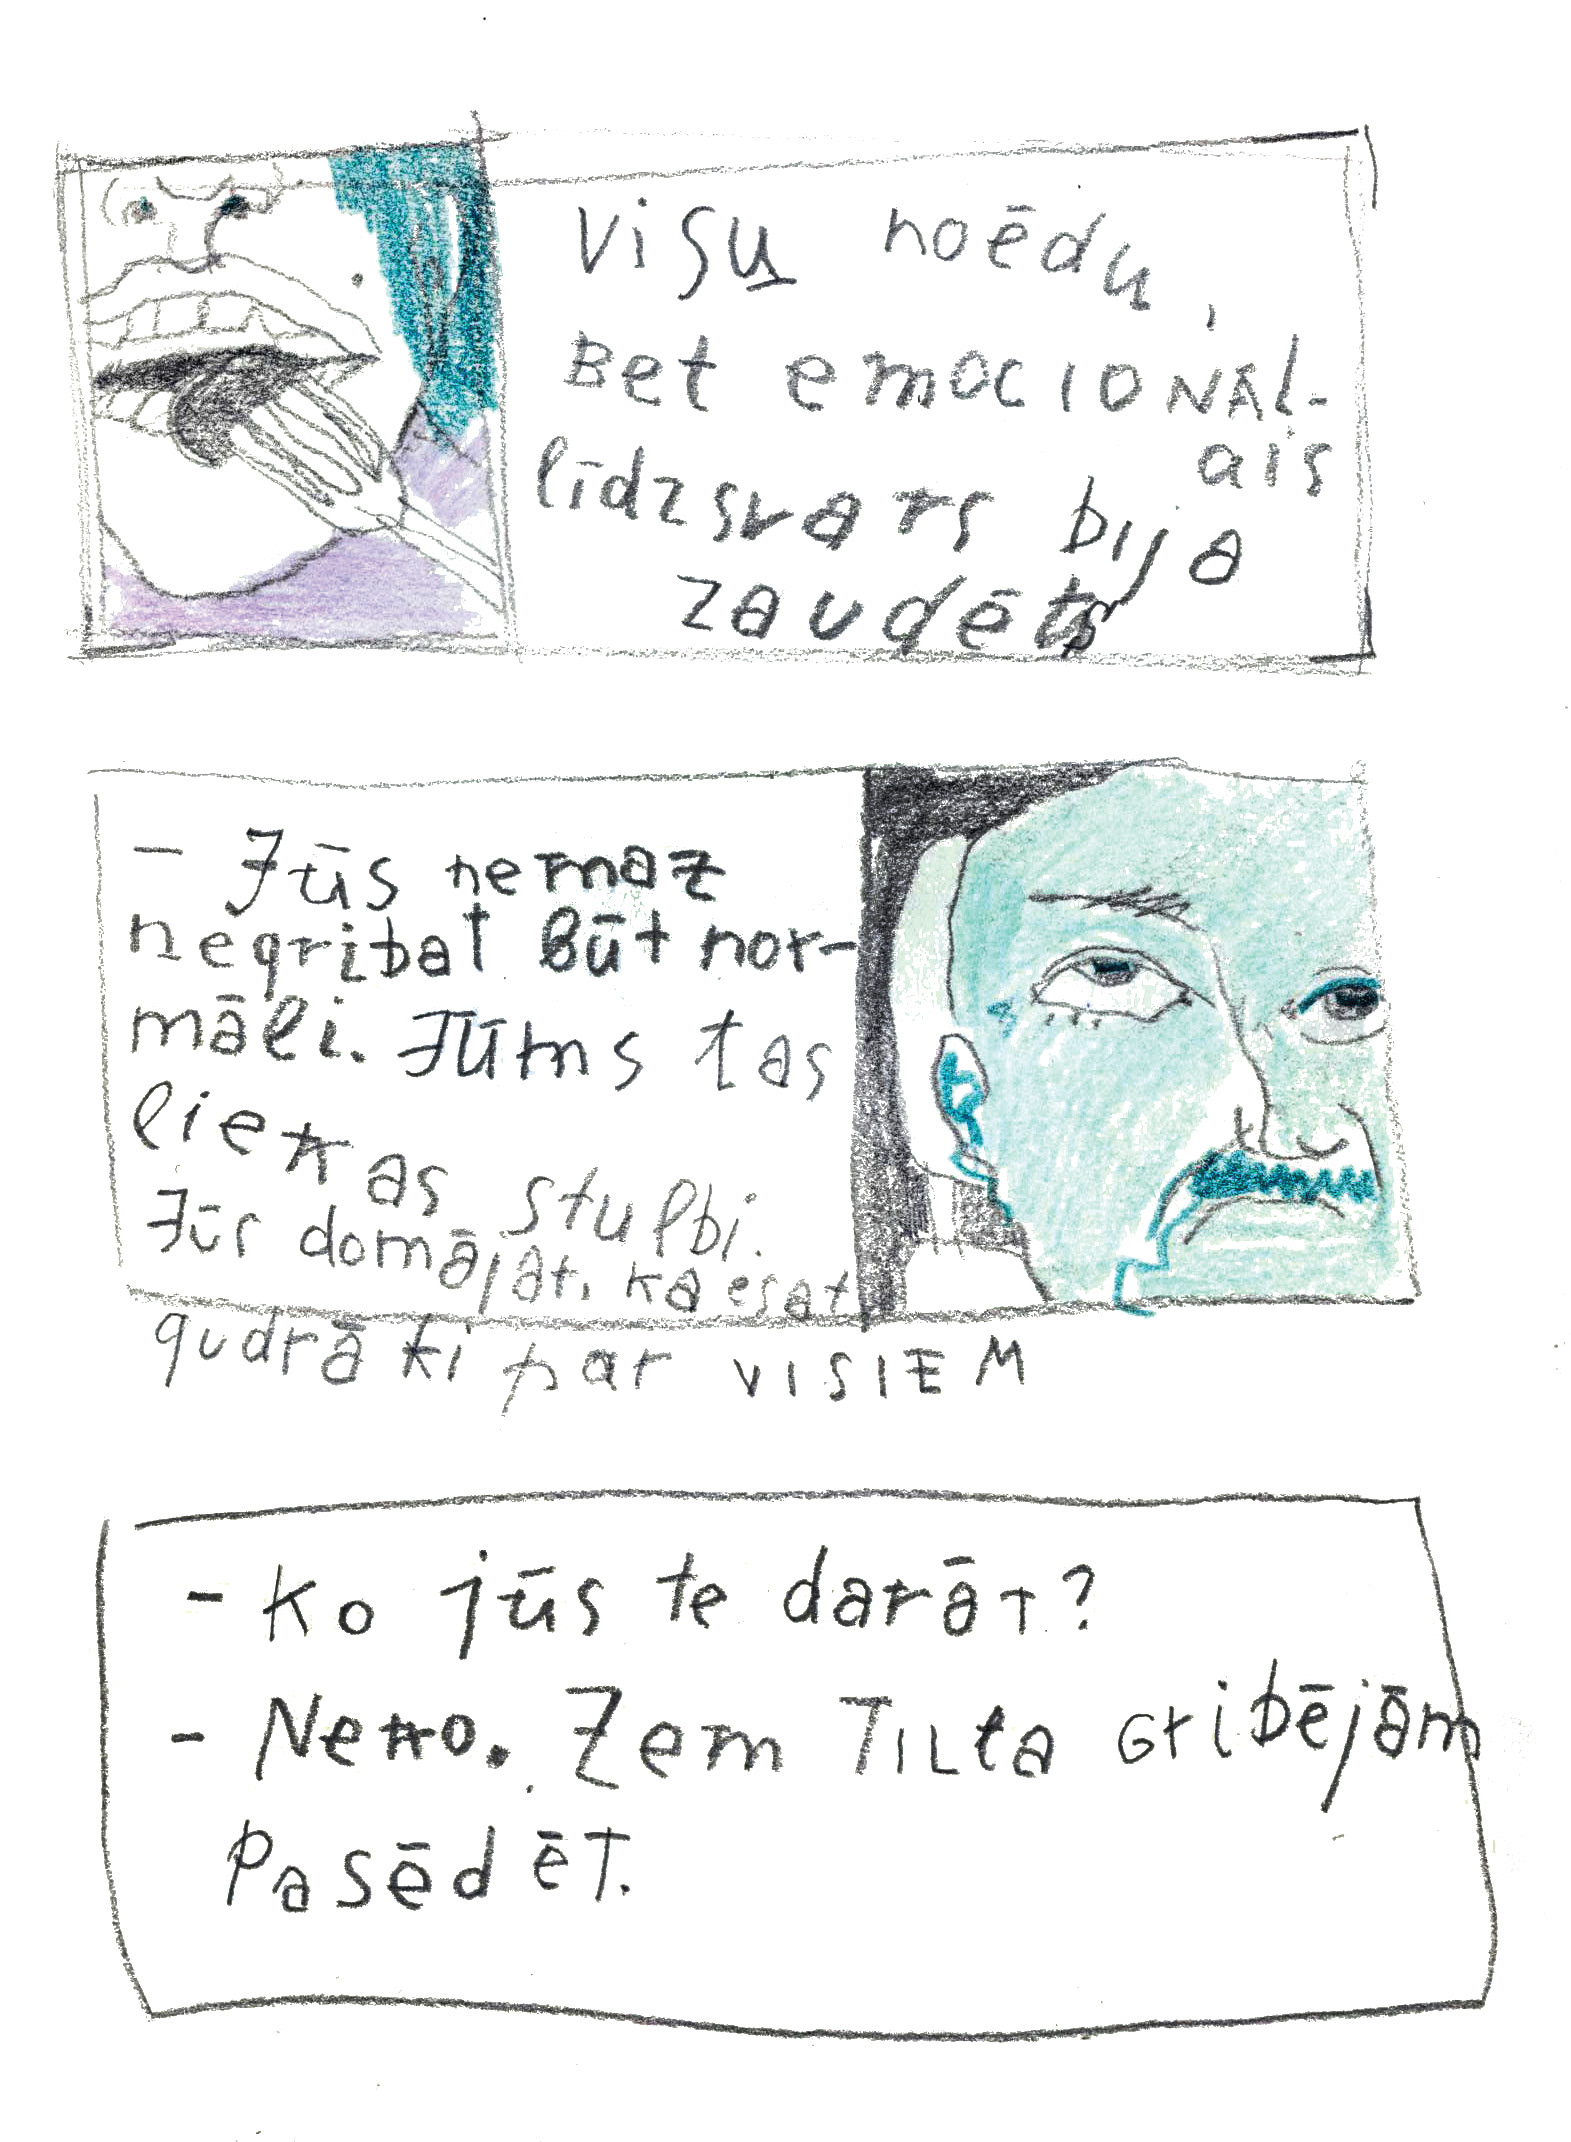 Visu noēdu,
bet emocionāl-
ais
līdzsvars bija
zaudēts
- Jūs nemaz
negribat būt nor-
māli. Jūms tas
liekas stulbi.
Jūs domājāt, ka esat
gudrāki par VISIEM
- Ko jūs te darāt?
- Neko. Zem Tilta Gribējām
Pasēdēt.